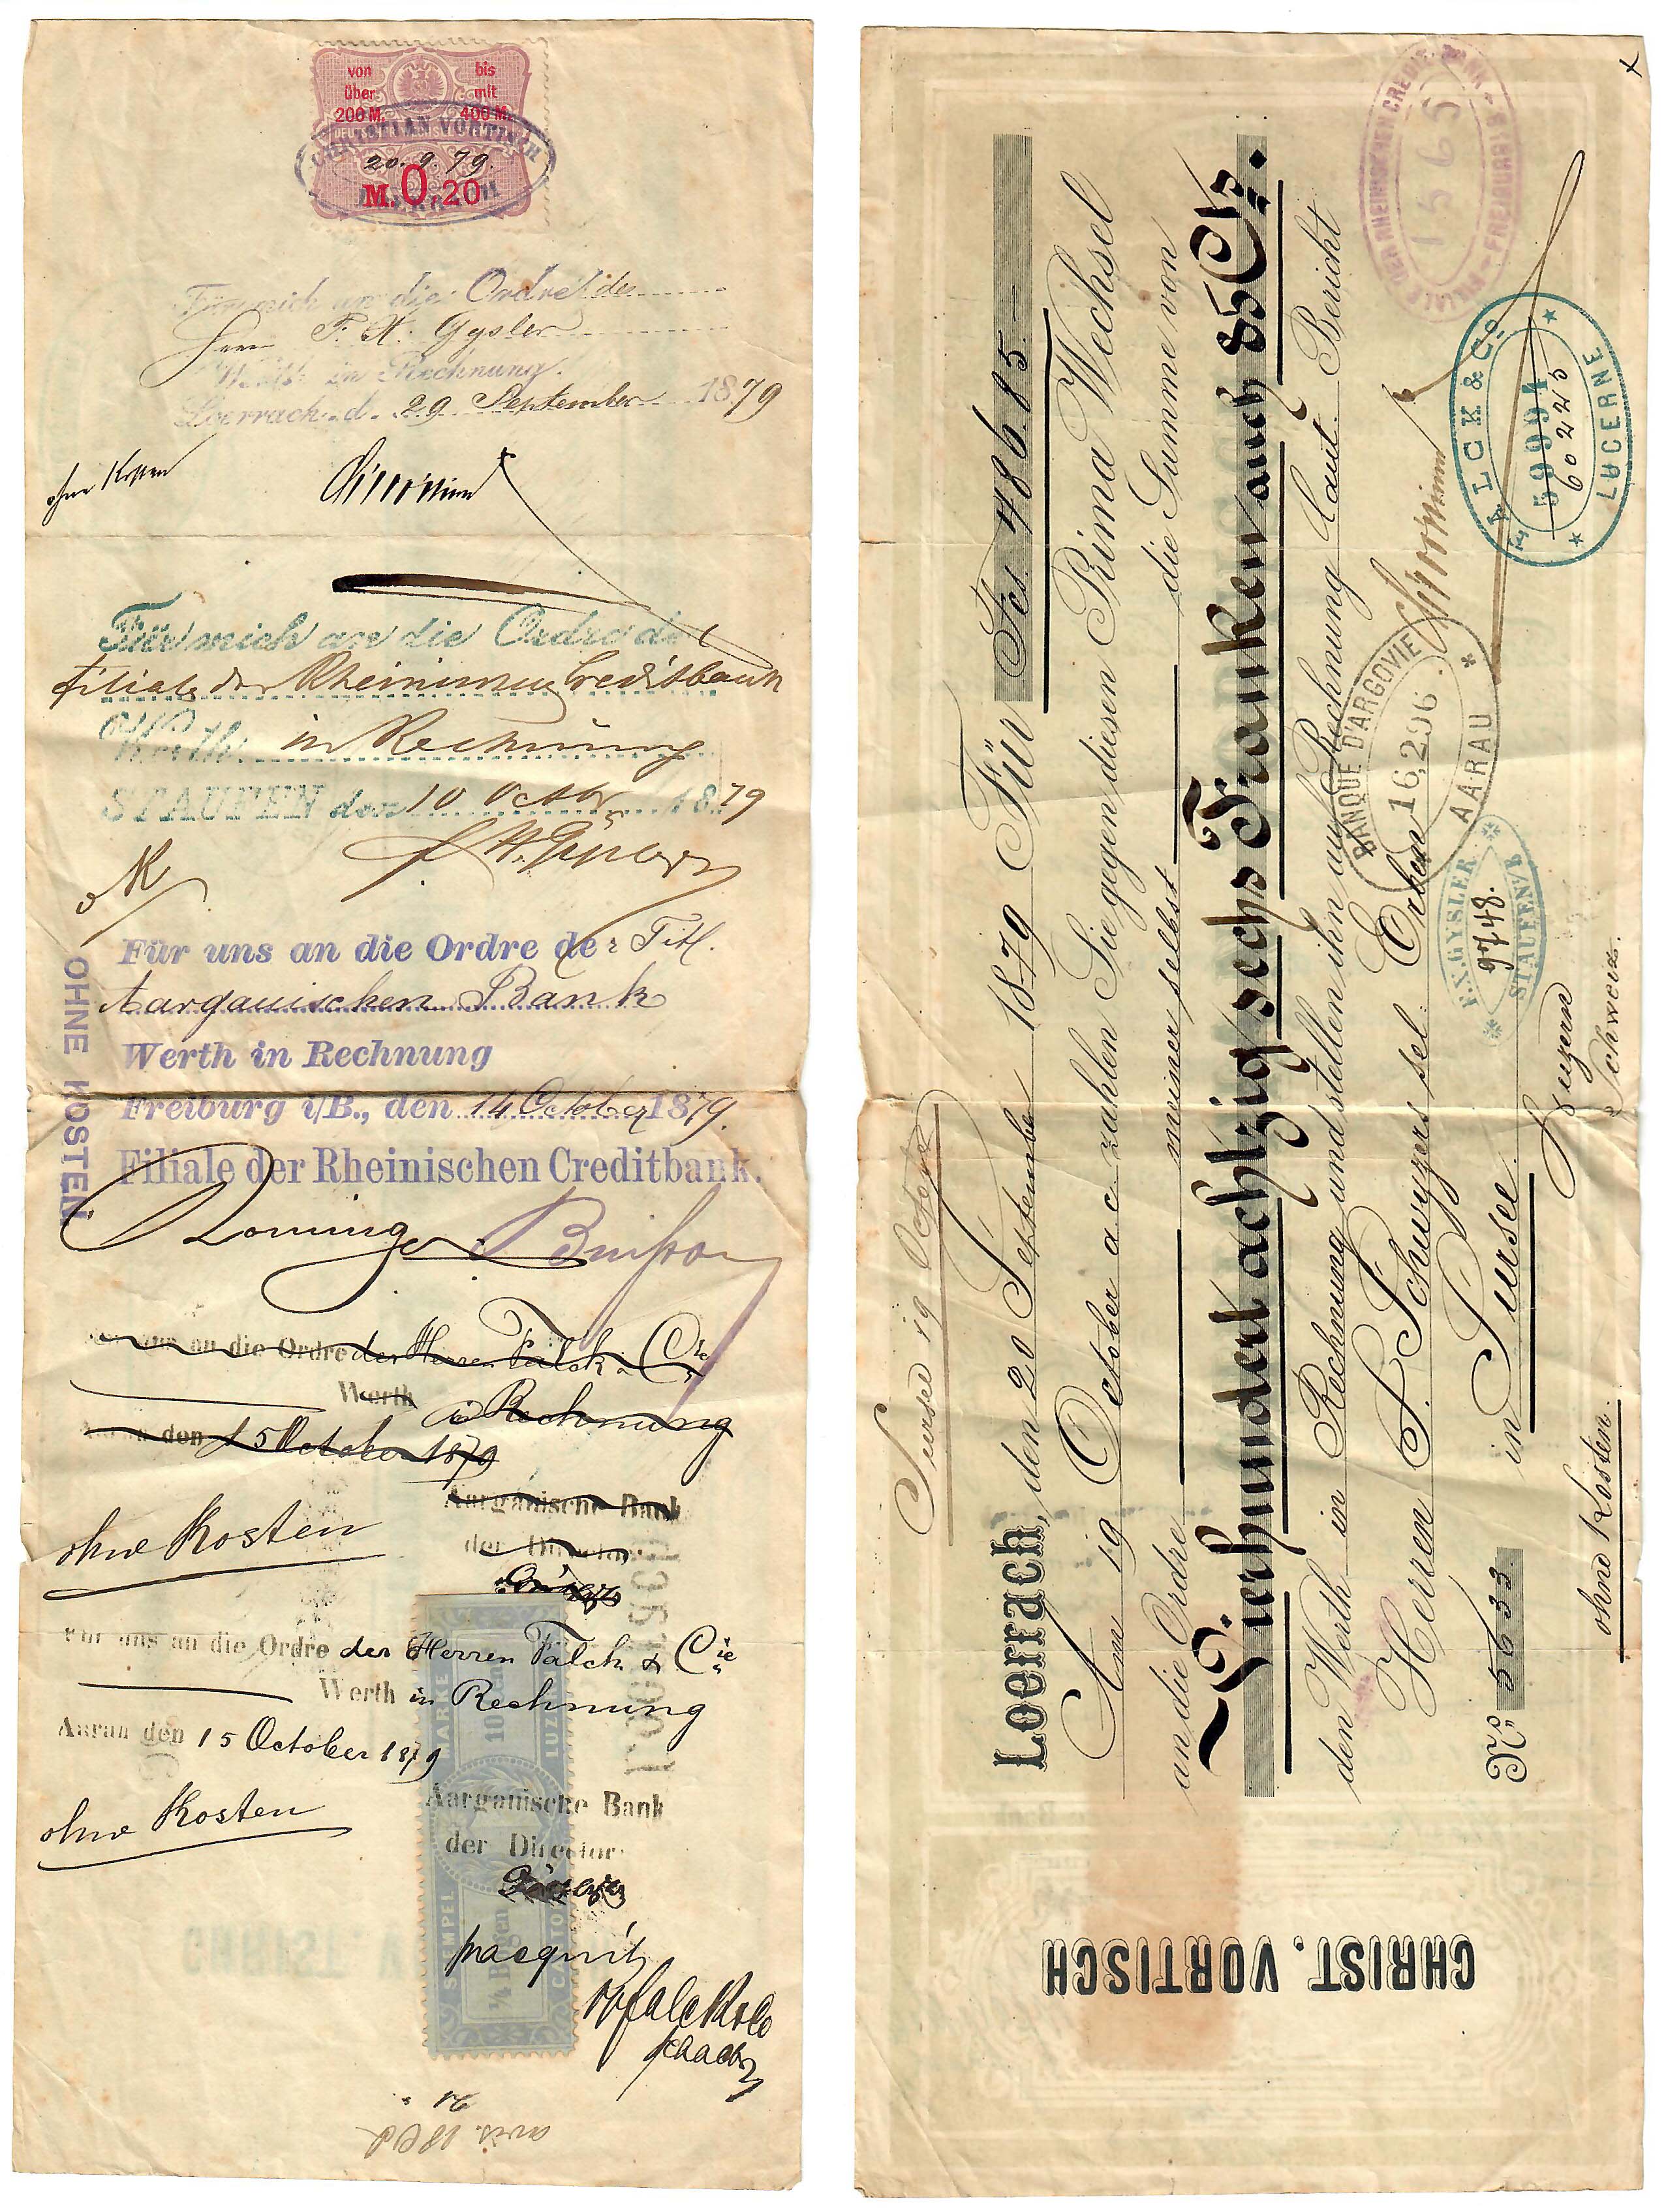 von bis
über mit
200 M. 400 M.
CHRISTIAN VORTISCH
20. 9. 79.
M. 0.20
LOERRACH
Für mich an die Ordre des
Herrn F. X. Gysler
Werth in Rechnung.
Loerrach d. 29 September 1879
ohne Kosten
Für mich an die Ordre der
Filiale der Rheinischen Creditbank
Werth in Rechnung
STAUFEN den 10 Octbr 1879
oK
Für uns an die Ordre der Titl.
Aargauischen Bank
Werth in Rechnung
Freiburg i/B., den 14 October 1879.
Filiale der Rheinischen Creditbank.
OHNE KOSTEN
an die Ordre der Herren Falck & Cie
Werth in Rechnung
den 15 October 1879
Aargauische Bank
der Director
ohne Kosten
Für uns an die Ordre der Herren Falck & Cie
Werth in Rechnung
Aarau den 15 October 1879
Aargauische Bank
der Director
ohne Kosten
STEMPEL MARKE
1/4 Bogen 10
CANTON LUZERN
pacquit
Sursee 19 October
Loerrach, den 20 September 1879 Für Fcs 486.85.
Am 19 October a. c. zahlen Sie gegen diesen Prima Wechsel
an die Ordre meiner selbst die Summe von
Vierhundert achtzig sechs Franken auch 85 Cts.
den Werth in Rechnung und stellen ihn auf Rechnung laut Bericht
Herren S. Schwyzers sel. Erben
No 5633 in Sursee
ohne Kosten.
Luzern
Schweiz.
CHRIST. VORTISCH
FILIALE DER RHEINISCHEN CREDIT-BANK - FREIBURG i/B
1565
FALCK & Co
59994
60225
LUCERNE
BANQUE D'ARGOVIE
16,296
AARAU
F.X. GYSLER
9748.
STAUFEN i/B